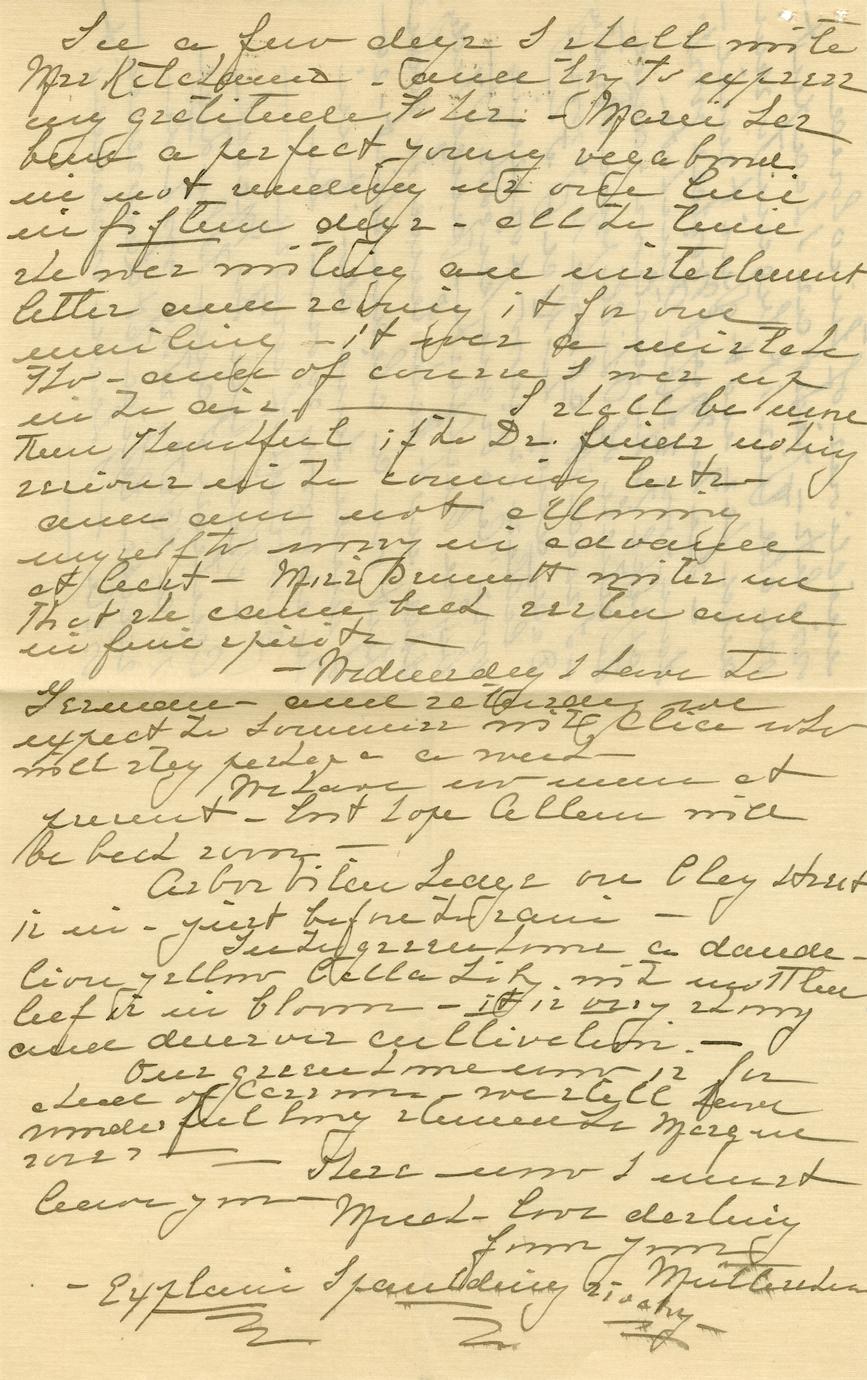 In a few days I shall write
Mrs Ketcham - and try to express
my gratitude to her - Marie has
been a perfect young vagabond
in not sending us one line
in fifteen days - all the time
she was writing an installment
letter and saving it for one
mailing - it was a mistake
tho - and of course I was up
in the air. —— I shall be more
than thankful if the Dr. finds nothing
serious in the coming tests
and am not allowing
myself to worry in advance
at least - Miss Bennett writes me
that she came back rested and
in fine spirits —
- Wednesday I have the
German - and saturday we
expect the Sommers with Alice who
will stay perhaps a week
We have no man at
present - but hope Allen will
be back soon —
Arbor Vitae hedge on Clay Street
is in - just before the rain —
In the greenhouse a dande-
lion yellow Calla Lily with mottled
leaf is in bloom - it is very showy
and deserves cultivation. —
Our greenhouse now is far
ahead of Carsons - we shall have
wonderful long stemmed Marque
roses — — There now I must
leave you — Much love darling
from your
- Explain Spaulding Mutterchen